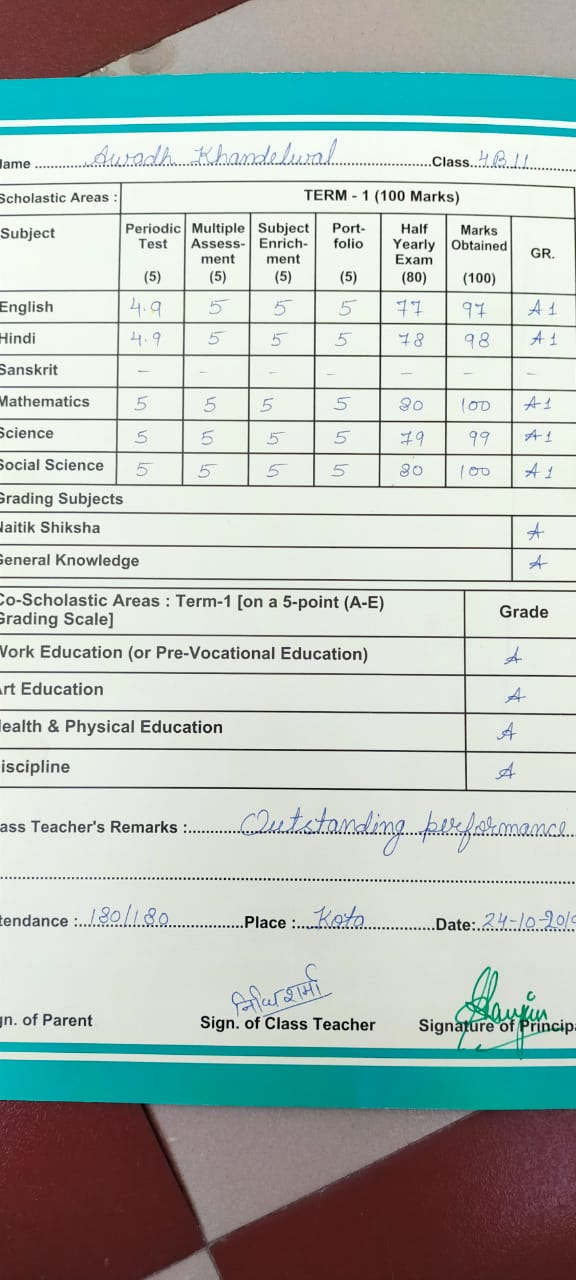 ame ........Awadh Khandelwal........Class..4B11......
Scholastic Areas : TERM - 1 (100 Marks)
Subject Periodic Test (5) Multiple Assess-ment (5) Subject Enrich-ment (5) Port-folio (5) Half Yearly Exam (80) Marks Obtained (100) GR.
English 4.9 5 5 5 77 97 A1
Hindi 4.9 5 5 5 78 98 A1
Sanskrit – – – – – – –
Mathematics 5 5 5 5 80 100 A1
Science 5 5 5 5 79 99 A1
Social Science 5 5 5 5 80 100 A1
Grading Subjects
Naitik Shiksha A
General Knowledge A
Co-Scholastic Areas : Term-1 [on a 5-point (A-E) Grade
Grading Scale]
Work Education (or Pre-Vocational Education) A
rt Education A
ealth & Physical Education A
iscipline A
ass Teacher's Remarks :........Outstanding performance
tendance :..180/180........Place :..Kota........Date:..24-10-2019
शर्मा
gn. of Parent Sign. of Class Teacher Signature of Principa